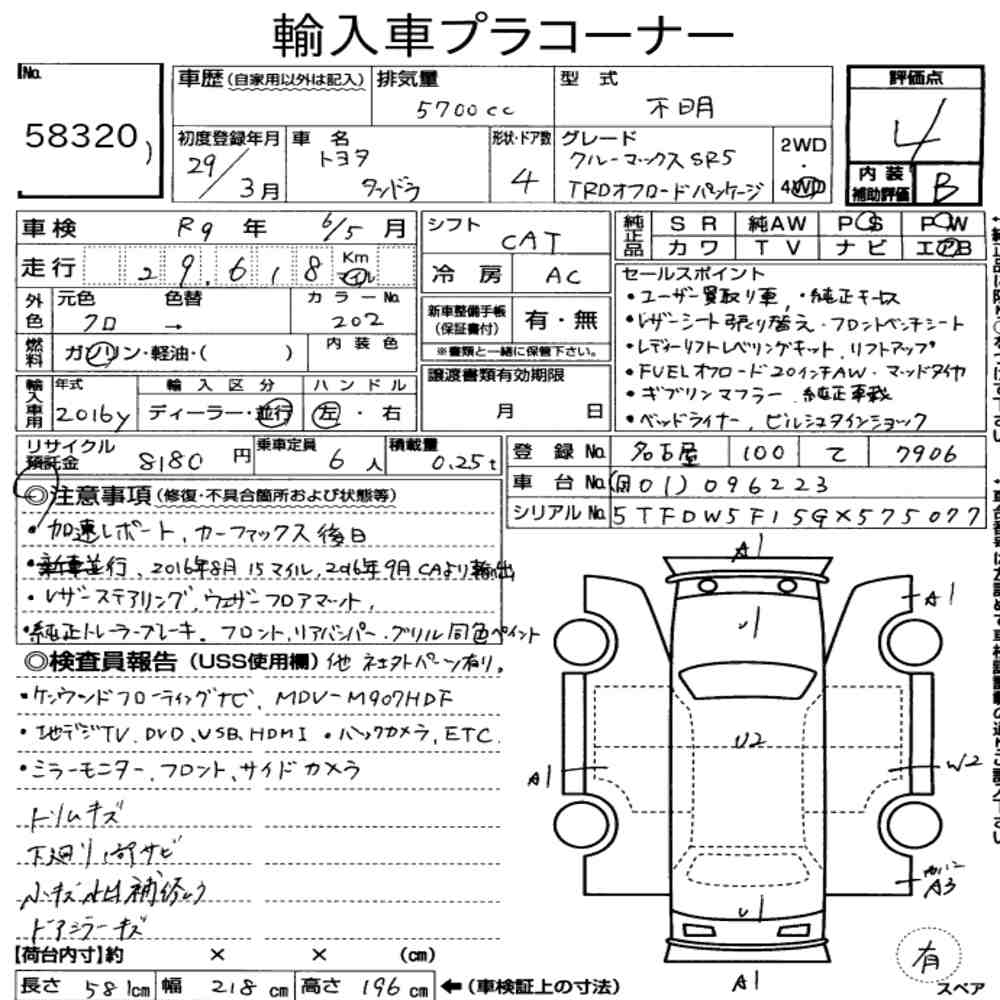 輸入車プラコーナー
No.
58320
車歴(自家用以外は記入) 排気量 5700cc 型式 不明
評価点 4
初度登録年月 29/3月 車名 トヨタ タンドラ 形状・ドア数 4 グレード クルーマックスSR5 TRDオフロードパッケージ 2WD・4WD
内装補助評価 B
車検 R9年 6/5月
走行 29,618 Km マイル
外色 元色 クロ 色替 → カラーNo. 202
燃料 ガソリン・軽油・( ) 内装色
輸入車用 年式 2016y 輸入区分 ディーラー・並行 ハンドル 左・右
シフト CAT
冷房 AC
新車整備手帳(保証書付) 有・無
※書類と一緒に保管下さい。
譲渡書類有効期限
月 日
純正品 SR 純AW PS PW
カワ TV ナビ エアB
セールスポイント
・ユーザー買取り車、・純正キーレス
・レザーシート張り替え・フロントベンチシート
・レディーリフトレベリングキット、リフトアップ
・FUELオフロード20インチAW・マッドタイヤ
・ギブソンマフラー 純正車載
・ベッドライナー、ビルシュタインショック
リサイクル預託金 8180円 乗車定員 6人 積載量 0.25t
登録No. 名古屋 100 て 7906
車台No. 国(01)096223
シリアルNo. 5TFDW5F15GX575077
◎注意事項(修復・不具合箇所および状態等)
・加速レポート、カーファックス後日
・新車並行、2016年8月 15マイル、2016年9月CAより輸出
・レザーステアリング、ウェザーフロアマット、
・純正トレーラーブレーキ、フロント、リアバンパー、グリル同色ペイント
◎検査員報告(USS使用欄) 他 社外パーツ有り。
・ケンウッドフローティングナビ、MDV-M907HDF
・地デジTV、DVD、USB、HDMI・バックカメラ、ETC
・ミラーモニター、フロント、サイドカメラ
トリムキズ
下廻り サビ
小キズ 補修
ドアミラーキズ
A1
A1
U1
U2
A1
W2
A3
U1
A1
有
スペア
【荷台内寸】約 × × (cm)
長さ 581cm 幅 218cm 高さ 196cm ←(車検証上の寸法)